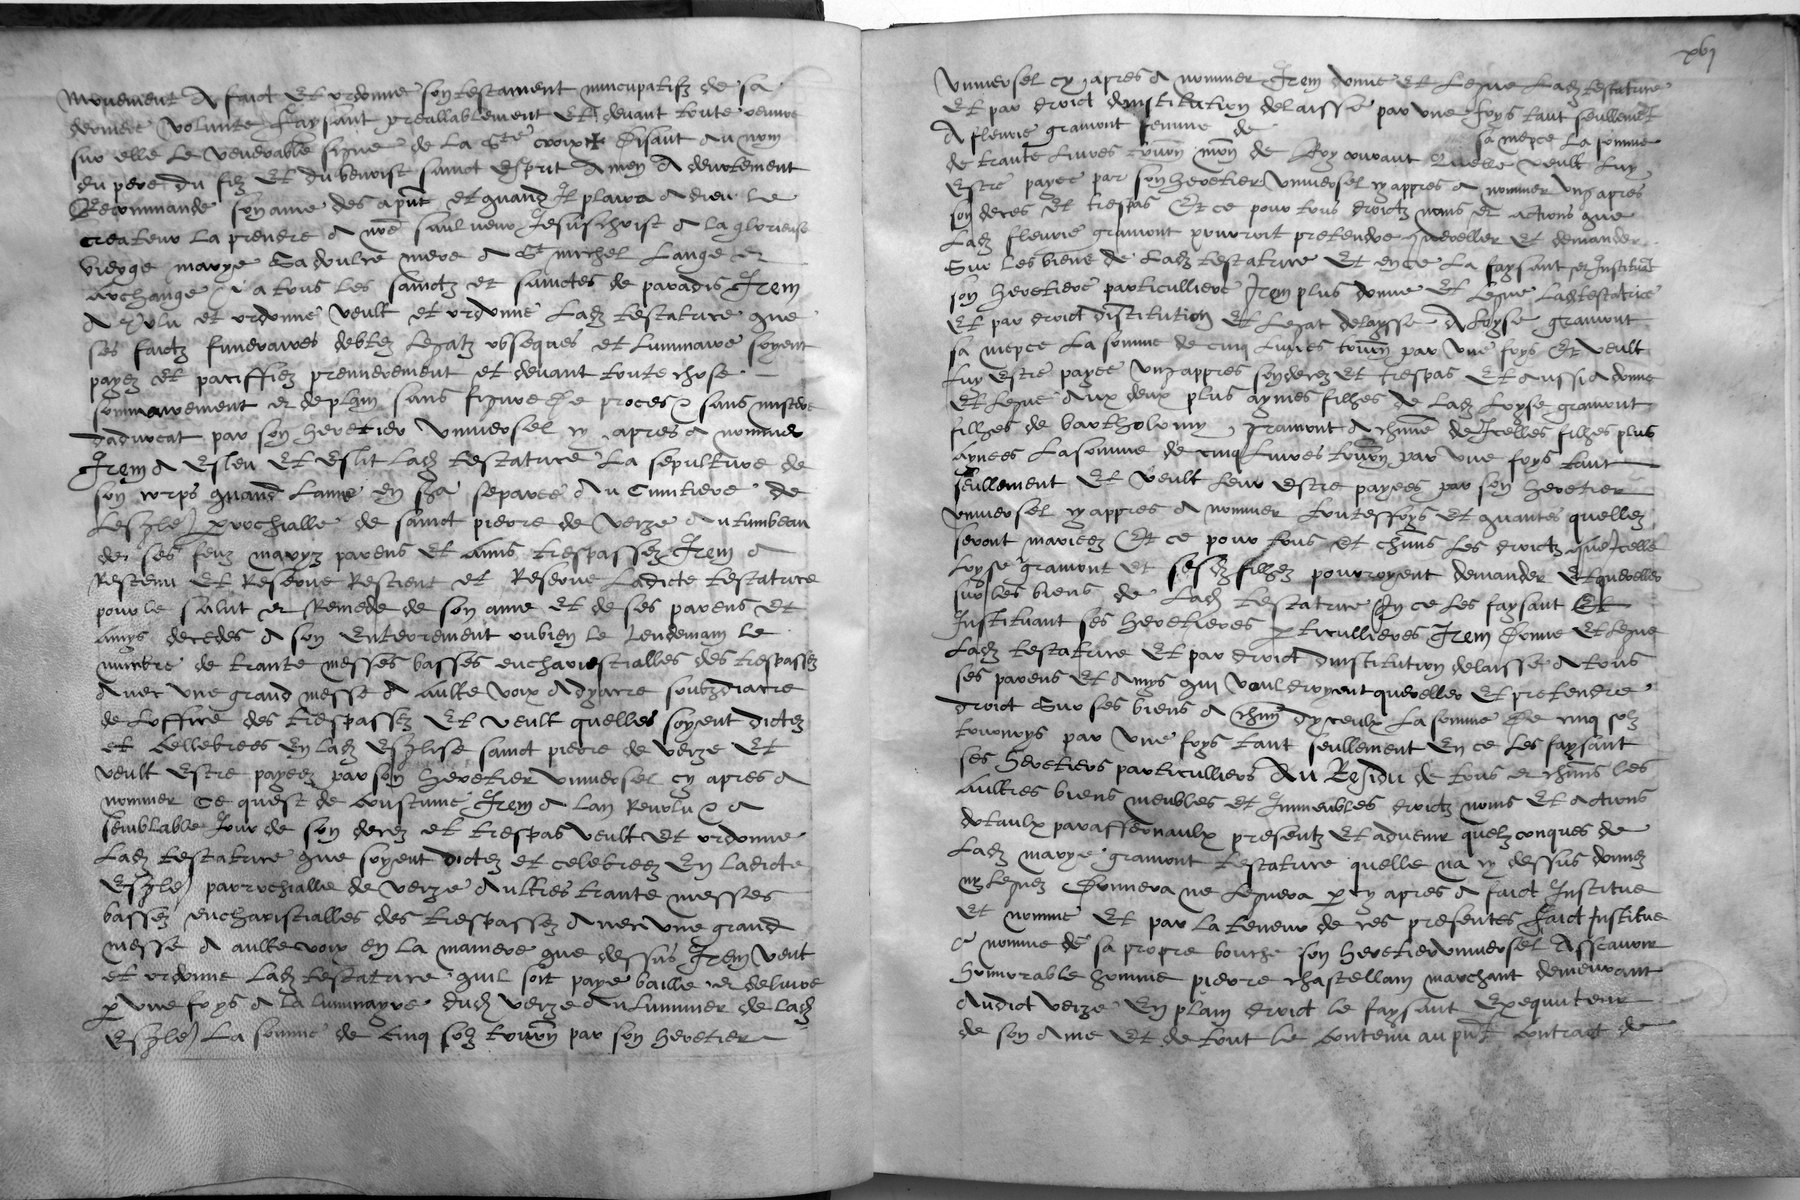 mouvement A faict Et ordonne son testament nuncupatifz de sa
derniere volunte faysant prealablement Et devant toute oeuvre
sur elle le venerable signe de la Ste croix ✝ Disant Au nom
du pere du filz Et du benoist sainct Esprit Amen A devotement
Recommande son ame des apnt et quand Il plaira a dieu le
createur la prendre A nre saulveur Jesuschrist A la glorieuse
vierge marye Sa doulce mere A St michel Lange Et
archange Et a tous les sainctz et sainctes de paradis Item
A volu et ordonne veult et ordonne Ladz testatrice que
ses faictz funeraires debtez legatz obseques et luminaire soyent
payez Et paciffiez premierement et devant toute chose
sommairement et de plain sans figure de proces & sans mistere
dadvocat par son heretier universel cy apres A nommer
Item A Esleu Et Eslit Ladz testatrice La sepulture de
son corps quand Lame en sera separee Au Cimitiere de
Leszle parrochialle de sainct pierre de verze Au tumbeau
de ses feuz maryz parens Et Amis trespassez Item A
Retenu Et Reserve Retient et Reserve Ladicte testatrice
pour le salut et Remede de son ame Et de ses parens Et
Amys decedes A son Enterrement oubien le lendemain le
nombre de trante messes basses eucharistialles des trespassez
Avec une grand messe A aulte voix A dyacre soubzdiacre
de Loffice des trespassez Et veult quelles soyent dictez
et Cellebrees En ladz Eszlise sainct pierre de verze Et
veult Estre payeez par son heretier universel cy apres A
nommer Ce quest de coustume Item A lan Revolu & A
semblable Jour de son decez et trespas veult Et ordonne
Ladz testatrice que soyent dictez et celebreez En ladicte
Eszle parrochialle de verze Aultres trante messes
bassez eucharistialles des trespassez Avec une grand
messe A aulte voix en la maniere que dessus Item veut
et ordonne Ladz testatrice quil soit paye baille et delivre
p une foys A la luminayre dudz verze Au luminier de ladz
Eszle La somme de Cinq solz tourn par son heretier
xvj
universel cy apres A nommer Item donne Et Legue Ladz testatrice
Et par droict dinstitution delaisse par une foys tant seullemet
A fleurie gramont femme de sa niepce La somme
de trante Livres tourn mon de Roy courant Quelle veult Luy
Estre payee par son heretier universel cy appres A nommer Ung apres
son deces Et trespas Et ce pour tous droictz noms et actions que
Ladz fleurie gramont pourroit pretendre quereller Et demander
Sur les biens de Ladz testatrice Et en ce La faysant et Instituant
son heretiere particulliere Item plus donne Et Legue Ladz testatrice
Et par droict dinstitution Et Legat delaysse A Loyse gramont
sa niepce La somme de cinq Livres tourn par une foys Et veult
Luy Estre payee Ung appres son decez Et trespas Et Aussi A donne
Et Legue Aux deux plus aynees filhes de Ladz Loyse gramont
filhes de bartholomy gramont A chune de Icelles filhes plus
aynees La somme de cinq Livres tourn par une foys tant
seullement Et veult leur Estre payees par son heretier
universel cy appres A nommer toutesfoys et quantes quellez
seront marieez Et ce pour tous Et chuns Les droictz que Icelle
Loyse gramont et sesdz filhez pourroyent demander Et quereller
sur les biens de Ladz testatrice En ce Les faysant Et
Instituant ses heretieres pticullieres Item Donne Et legue
Ladz testatrice Et par droict dinstitution delaisse A tous
ses parens Et Amys qui vouldroyent quereller Et pretendre
droict Sur ses biens A chun dyceulx La somme De cinq solz
tournoys par une foys tant seullement En ce Les faysant
ses heretiers particulliers Au Residu de tous et chuns les
aultres biens meubles et Immeubles droictz noms Et actions
dotaulx paraffernaulx presentz Et advenir quelzconques de
Ladz marye gramont testatrice quelle na cy dessus donnez
ny leguez Donnera ne Leguera p cy apres A faict Institue
Et nomme Et par la teneur de ces presentes faict Institue
& nomme de sa propre bouche son heretier universel Asscavoir
honnorable homme pierre chastellain marchant demeurant
Audict verze En plain droict le faysant Exequuteur
de son Ame Et de tout le contenu au pnt contract de